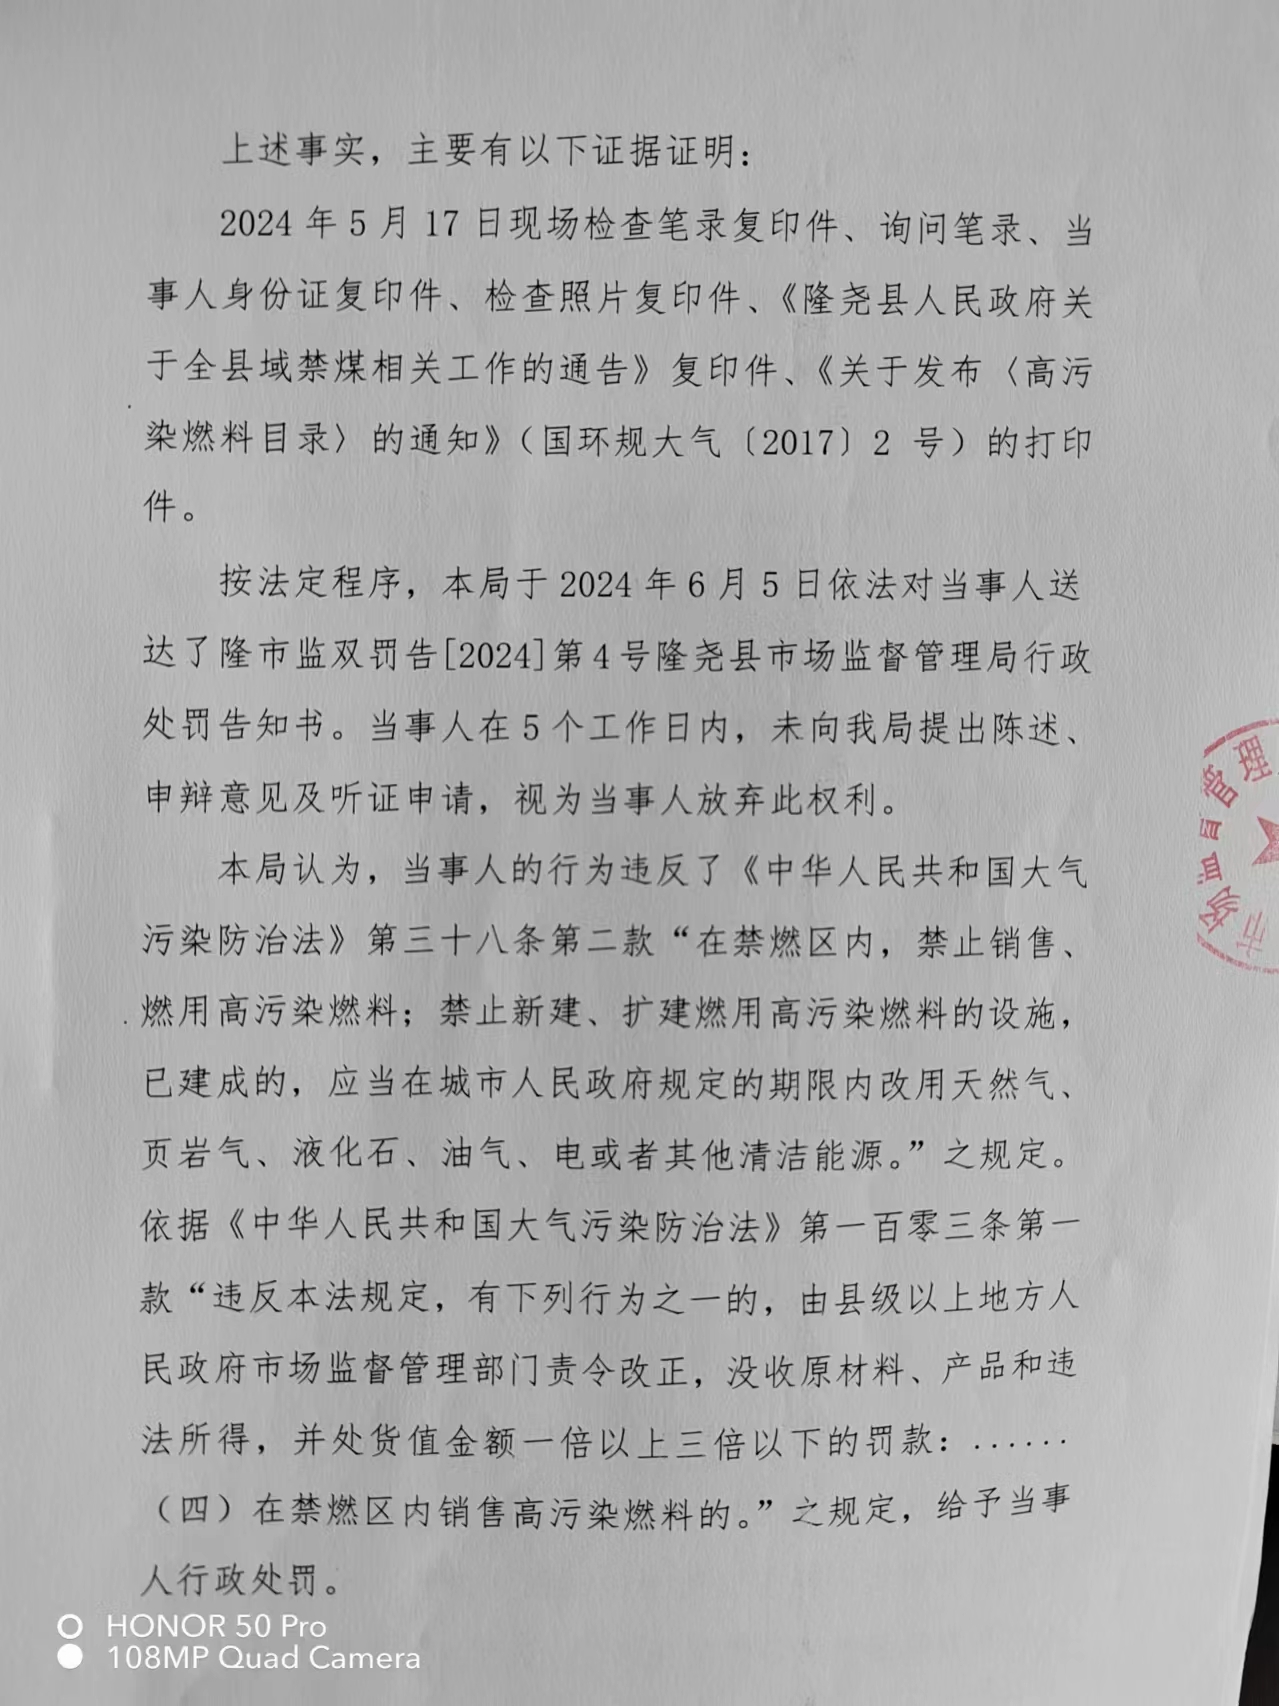 上述事实，主要有以下证据证明：
2024 年 5 月 17 日现场检查笔录复印件、询问笔录、当
事人身份证复印件、检查照片复印件、《隆尧县人民政府关
于全县域禁煤相关工作的通告》复印件、《关于发布〈高污
染燃料目录〉的通知》（国环规大气〔2017〕2 号）的打印
件。
按法定程序，本局于 2024 年 6 月 5 日依法对当事人送
达了隆市监双罚告[2024]第 4 号隆尧县市场监督管理局行政
处罚告知书。当事人在 5 个工作日内，未向我局提出陈述、
申辩意见及听证申请，视为当事人放弃此权利。
本局认为，当事人的行为违反了《中华人民共和国大气
污染防治法》第三十八条第二款“在禁燃区内，禁止销售、
燃用高污染燃料；禁止新建、扩建燃用高污染燃料的设施，
已建成的，应当在城市人民政府规定的期限内改用天然气、
页岩气、液化石、油气、电或者其他清洁能源。”之规定。
依据《中华人民共和国大气污染防治法》第一百零三条第一
款“违反本法规定，有下列行为之一的，由县级以上地方人
民政府市场监督管理部门责令改正，没收原材料、产品和违
法所得，并处货值金额一倍以上三倍以下的罚款：......
（四）在禁燃区内销售高污染燃料的。”之规定，给予当事
人行政处罚。
市场监督管理
HONOR 50 Pro
108MP Quad Camera